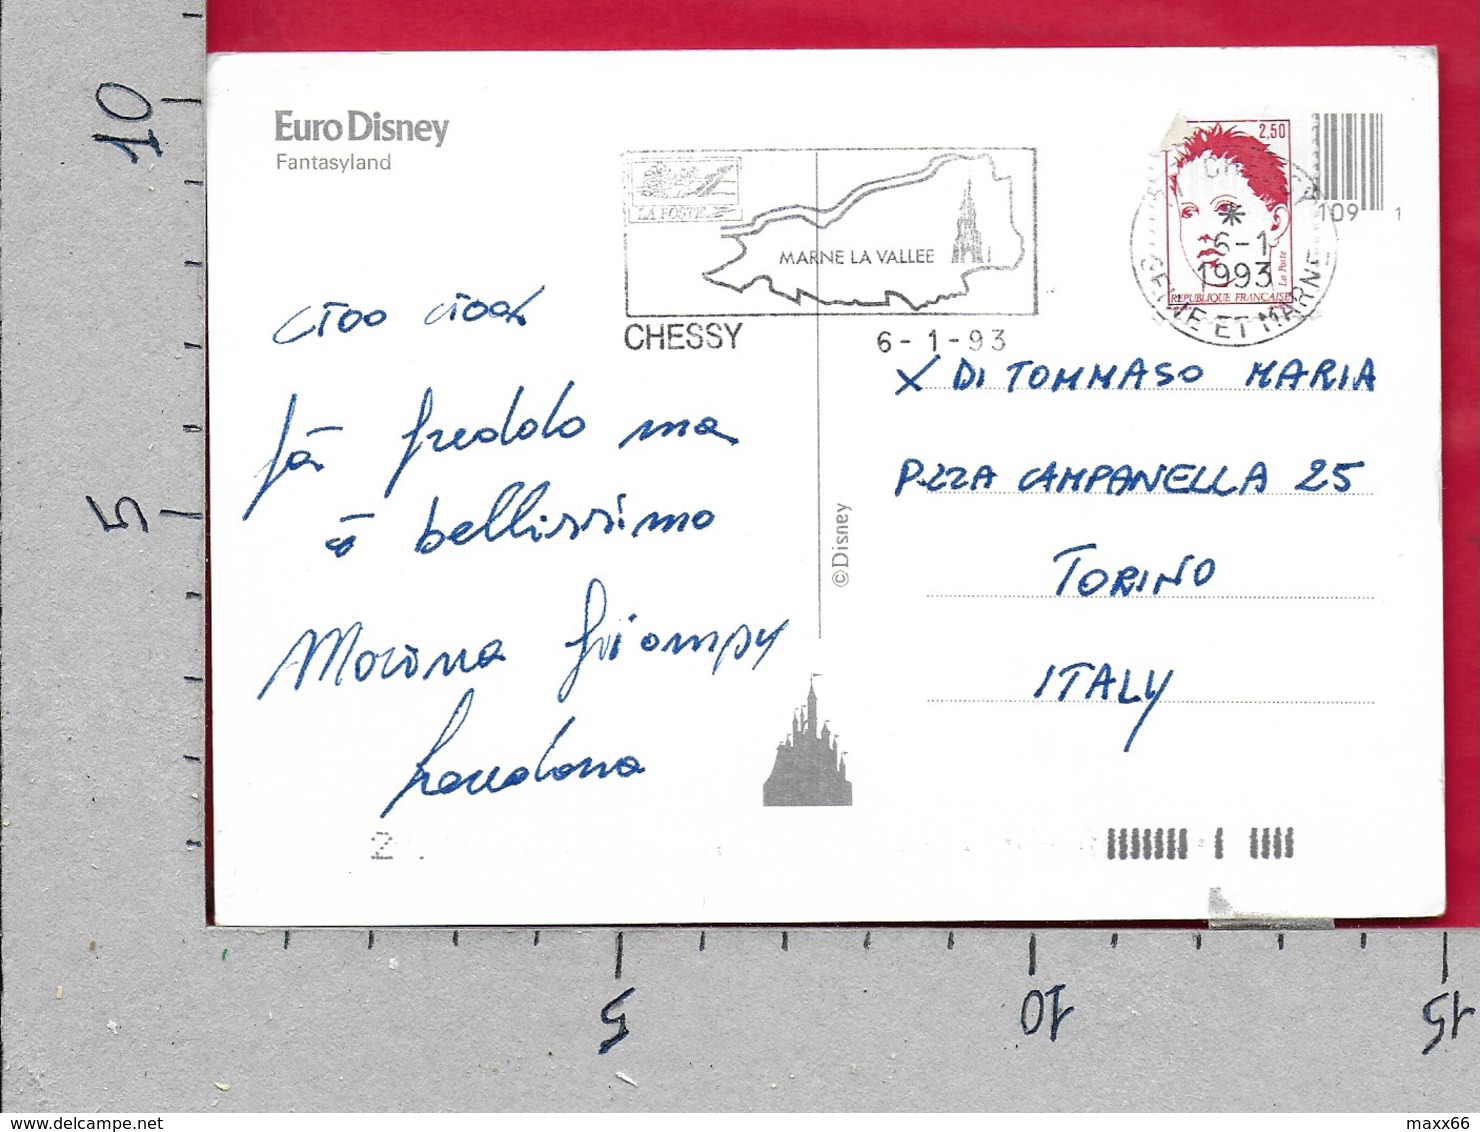 10
5
Euro Disney
Fantasyland
LA POSTE
MARNE LA VALLEE
CHESSY
6-1-93
2,50
La Poste
REPUBLIQUE FRANÇAISE
77 CHESSY
*
6-1
1993
SEINE ET MARNE
109 1
ciao ciao
fà freddo ma
è bellissimo
X DI TOMMASO MARIA
P.ZZA CAMPANELLA 25
TORINO
ITALY
©Disney
2 .
5
10
15
delcampe.net
maxx66